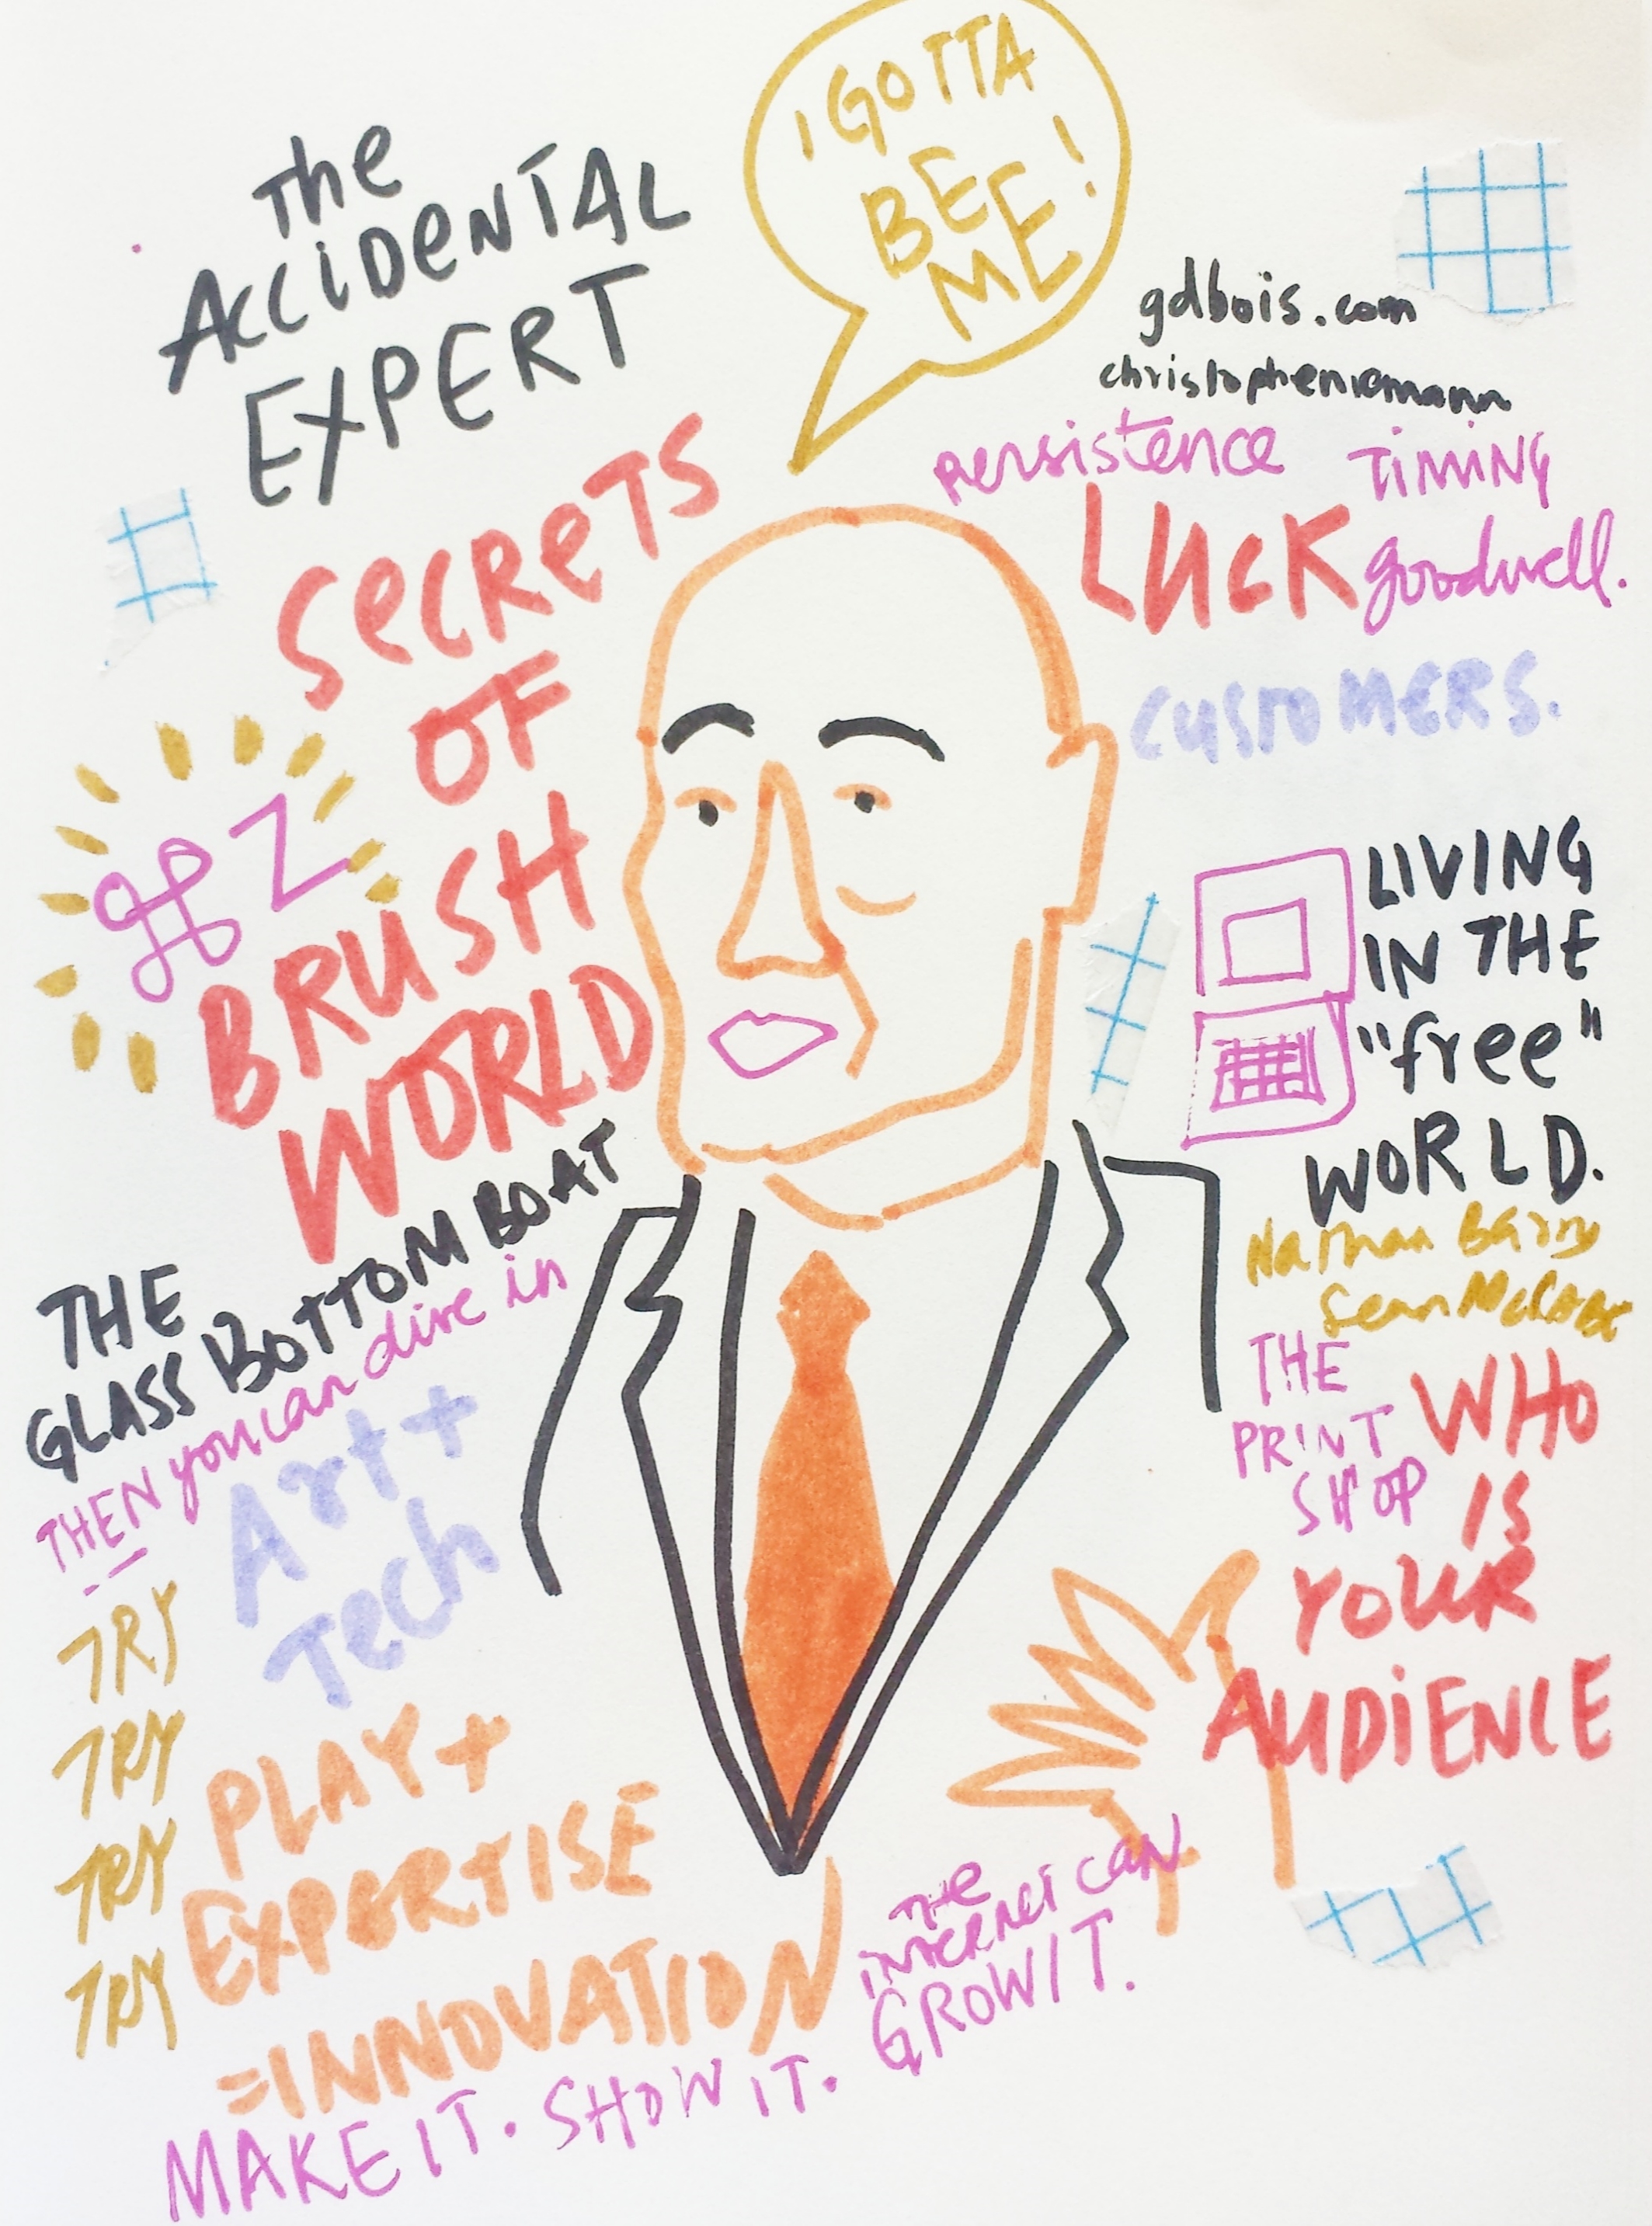 I GOTTA
BEE
ME!
The
ACCIDENTAL
EXPERT
SECRETS
OF
BRUSH
WORLD
⌘Z
THE
GLASS BOTTOM BOAT
THEN you can dive in
Art +
Tech
TRY
TRY
TRY
TRY
PLAY +
EXPERTISE
= INNOVATION
MAKE IT. SHOW IT.
THE
INTERNET CAN
GROW IT.
gdbois.com
christophniemann
Persistence
TIMING
LUCK
goodwill.
CUSTOMERS.
LIVING
IN THE
"free"
WORLD.
Nathan Barry
Sean McCabe
THE
PRINT
SHOP
WHO
IS
YOUR
AUDIENCE